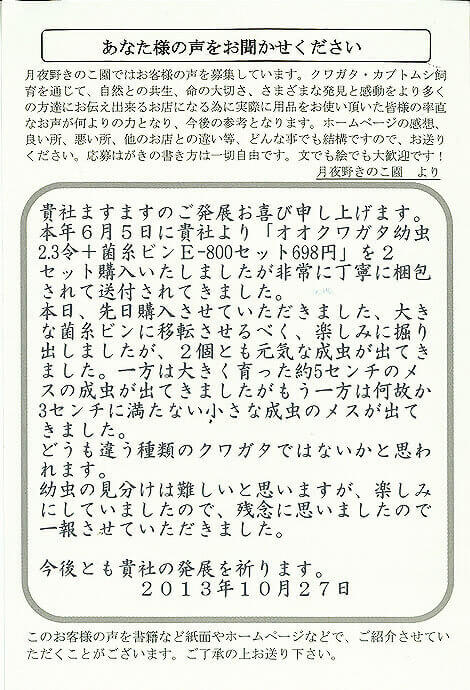 あなた様の声をお聞かせください
月夜野きのこ園ではお客様の声を募集しています。クワガタ・カブトムシ飼
育を通じて、自然との共生、命の大切さ、さまざまな発見と感動をより多く
の方達にお伝え出来るお店になる為に実際に用品をお使い頂いた皆様の率直
なお声が何よりの力となり、今後の参考となります。ホームページの感想、
良い所、悪い所、他のお店との違い等、どんな事でも結構ですので、お送り
ください。応募はがきの書き方は一切自由です。文でも絵でも大歓迎です！
月夜野きのこ園　より
貴社ますますのご発展お喜び申し上げます。
本年６月５日に貴社より「オオクワガタ幼虫
2.3令＋菌糸ビンＥ-800セット698円」を２
セット購入いたしましたが非常に丁寧に梱包
されて送付されてきました。
本日、先日購入させていただきました、大き
な菌糸ビンに移転させるべく、楽しみに掘り
出しましたが、２個とも元気な成虫が出てき
ました。一方は大きく育った約5センチのメ
スの成虫が出てきましたがもう一方は何故か
3センチに満たない小さな成虫のメスが出て
きました。
どうも違う種類のクワガタではないかと思わ
れます。
幼虫の見分けは難しいと思いますが、楽しみ
にしていましたので、残念に思いましたので
一報させていただきました。
今後とも貴社の発展を祈ります。
２０１３年１０月２７日
このお客様の声を書籍など紙面やホームページなどで、ご紹介させてい
ただくことがございます。ご了承の上お送り下さい。